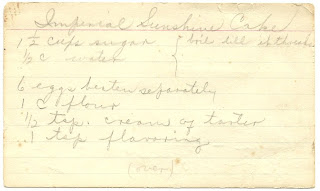 Imperial Sunshine Cake
1 ½ cups sugar { boil till it threads
½ c water
6 eggs beaten separately
1 c flour
1/2 tsp. cream of tarter
1 tsp flavoring
(over)